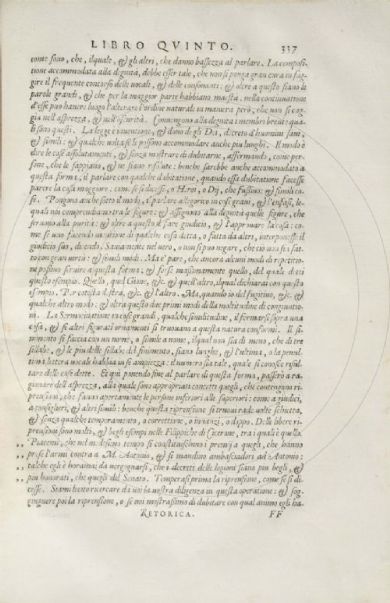 LIBRO QVINTO. 337
come sono, che, ilquale, & gli altri, che danno bassezza al parlare. La composi-
tione accommodata alla dignità, debbe esser tale, che non si ponga gran cura in fug-
gire il frequente concorso delle vocali, & delle consonanti: & oltre a questo siano le
parole grandi, & che per la maggior parte habbiano
d'esse può havere luogo l'alterare l'ordine naturale in maniera però, che non si cag-
gia nell'asprezza, & nell'oscurità. Convengono alla degnità i membri brevi: qua-
li sono questi. La legge è inventione, & dono de gli Dei, decreto d'huomini savi,
& simili: & qualche volta se li possono accommodare anche più lunghi. Il modo è
dire le cose assolutamente, & senza mostrare di dubitarne, affermando, come per-
sone, che le sappiano, & ne siano risolute: benche sarebbe anche accommodato a
questa forma, il parlare con qualche dubitatione, quando essa dubitatione facesse
parere la cosa maggiore: come se si dicesse, o Heroi, o Dij, che fussino: & simili co-
se. Pongano anche sotto il modo, il parlare allegorico in casi gravi, & l'enfasi, le-
quali noi comprendiamo tra le figure: & assegnano alla degnità quelle figure, che
servano alla purità: & oltre a questo il fare giudicio, & l'approvare la cosa: co-
me se uno facendo narratione di qualche cosa detta, o fatta da altri, interponesse il
giudicio suo, dicendo, Saviamente nel vero, o non si può negare, che ciò non sia fat-
to con gran virtù: & simili modi. Ma è pare, che ancora alcuni modi di repetitio-
ne possino servire a questa forma: & forse massimamente quello, del quale diedi
questo esempio. Quello, quel Giove, &c. & quell'altro, ilqual dichiarai con questo
esempio. Per città illustra, &c. & l'altro. Ma, quando io dal fuggitivo, &c. &
qualche altro modo: & oltra questo due primi modi della moltitudine di continuatio-
ni. La Sermocinatione in cose grandi, qualche similitudine, il fermarsi sopra una
cosa, & si altri figurati ornamenti si truovano a questa natura conformi. Il fi-
nimento si faccia con un nome, o simile a nome, ilqual non sia di meno, che di tre
sillabe, & le più delle sillabe del finimento, siano lunghe, & l'ultima, o la penul-
tima lettera vocale habbia in sé ampiezza: il numero sia tale, quale si conosce risul-
tare delle cose dette. Et qui ponendo fine al parlare di questa forma, passerò a ra-
gionare dell'asprezza, alla quale sono appropriati concetti quegli, che contengono ri-
prensioni, che fanno apertamente le persone inferiori alle superiori: come a giudici,
a consiglieri, & altri simili: benche questa riprensione si truovi rade volte schietta,
& senza qualche temperamento, o correttione, o innanzi, o doppo. Delle libere ri-
prensioni sono molti, & begli esempi nelle Filippiche di Cicerone, tra i quali è quello.
,, Potemmi, che nel medesimo tempo si constituischino i premij a quegli, che hanno
,, preso l'armi contra a M. Antonio, & si mandino ambasciadori ad Antonio:
,, talche egli è horamai da vergognarsi, che i decreti delle legioni siano più begli, &
,, più honorati, che quegli del Senato. Temperasi prima la riprensione, come se si di-
cesse. Siami bene ricercare da voi la vostra diligenza in questa operatione: & sog-
giugnere poi la riprensione, o se noi mostrassimo di dubitare con qual animo egli ha-
RETORICA. FF